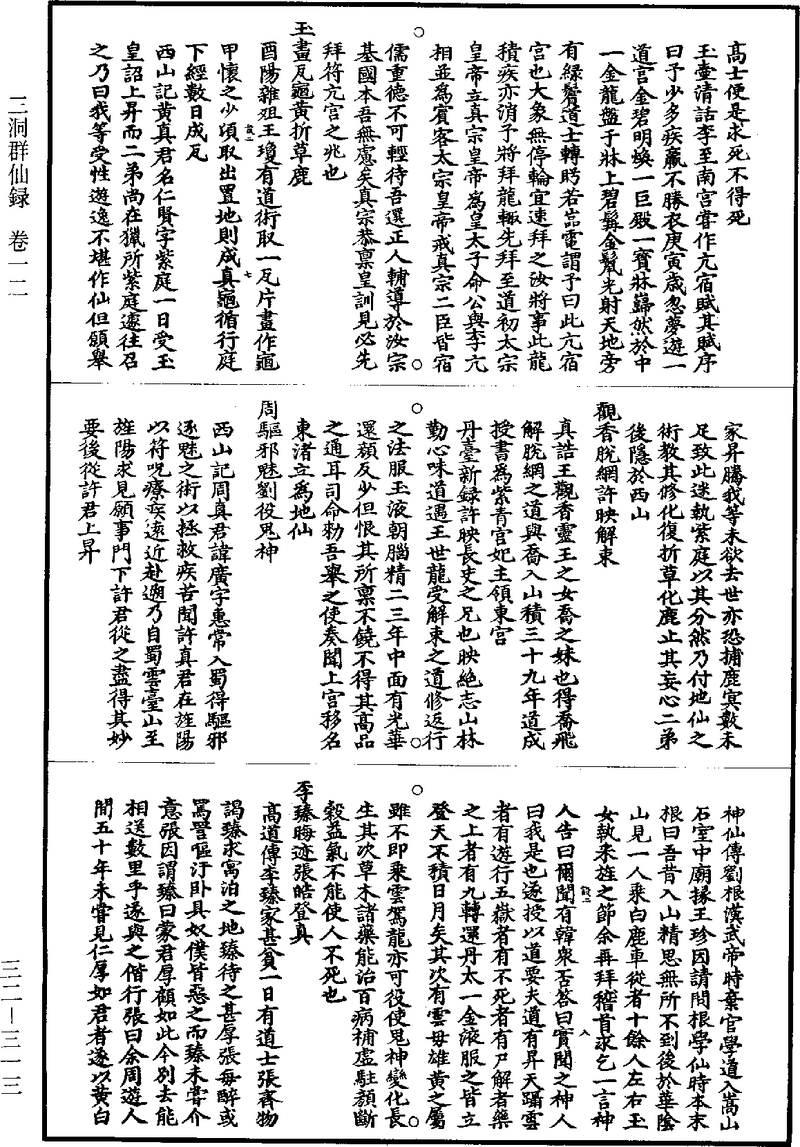 三洞群仙録 卷一二
三二—三一三
高士便是求死不得死
玉壺清話李至南宫嘗作亢宿賦其賦序
曰予少多疾羸不勝衣庚寅歳忽夢遊一
道宫金碧明煥一巨殿一寳牀巋然於中
一金龍盤于牀上碧髯金鬣光射天地旁
有緑鬢道士轉眄若嵓電謂予曰此亢宿
宫也大象無停輪宜速拜之汝將事此龍
積疾亦消予將拜龍輒先拜至道初太宗
皇帝立真宗皇帝爲皇太子命公與李亢
相並爲賓客太宗皇帝戒真宗二臣皆宿
儒重德不可輕待吾選正人輔導於汝宗
基國本吾無慮矣真宗恭禀皇訓見必先
拜符亢宫之兆也
王畫瓦龜黄折草鹿
酉陽雜俎王瓊有道術取一瓦片畫作龜
甲懷之少頃取出置地則成真龜循行庭
下經數日成瓦
西山記黄真君名仁賢字紫庭一日受玉
皇詔上昇而二弟尚在獵所紫庭遽往召
之乃曰我等受性遊逸不堪作仙但願舉
家昇騰我等未欲去世亦恐捕鹿㝠數未
足致此迷執紫庭以其分然乃付地仙之
術教其修化復折草化鹿止其妄心二弟
後隱於西山
觀香脱網許映解束
真誥王觀香靈王之女喬之妹也得喬飛
解脱網之道與喬入山積三十九年道成
授書爲紫青宫妃主領東宫
丹臺新録許映長史之兄也映絶志山林
勤心味道遇王世龍受解束之道修返行
之法服玉液朝腦精二三年中面有光華
還顔反少但恨其所禀不饒不得其高品
之通耳司命勑吾舉之使奏聞上宫移名
東渚立爲地仙
周驅邪魅劉役鬼神
西山記周真君諱廣字惠常入蜀得驅邪
逐魅之術以拯救疾苦聞許真君在旌陽
以符呪療疾遠近赴遡乃自蜀雲臺山至
旌陽求見願事門下許君從之盡得其妙
要後從許君上昇
神仙傳劉根漢武帝時棄官學道入嵩山
石室中廟掾王珍因請問根學仙時本末
根曰吾昔入山精思無所不到後於華隂
山見一人乘白鹿車從者十餘人左右玉
女執朱旄之節余再拜稽首求乞一言神
人告曰爾聞有韓衆否答曰實聞之神人
曰我是也遂授以道要夫道有昇天躡雲
者有遊行五嶽者有不死者有尸解者藥
之上者有九轉還丹太一金液服之皆立
登天不積日月矣其次有雲母雄黄之屬
雖不即乘雲駕龍亦可役使鬼神變化長
生其次草木諸藥能治百病補虚駐顔斷
穀益氣不能使人不死也
李臻晦迹張皓登真
高道傳李臻家甚貧一日有道士張齊物
謁臻求寓泊之地臻待之甚厚張每醉或
罵詈嘔汙卧具奴僕皆惡之而臻未嘗介
意張因謂臻曰蒙君厚顧如此今别去能
相送數里乎遂與之偕行張曰余周遊人
間五十年未嘗見仁厚如君者遂以黄白